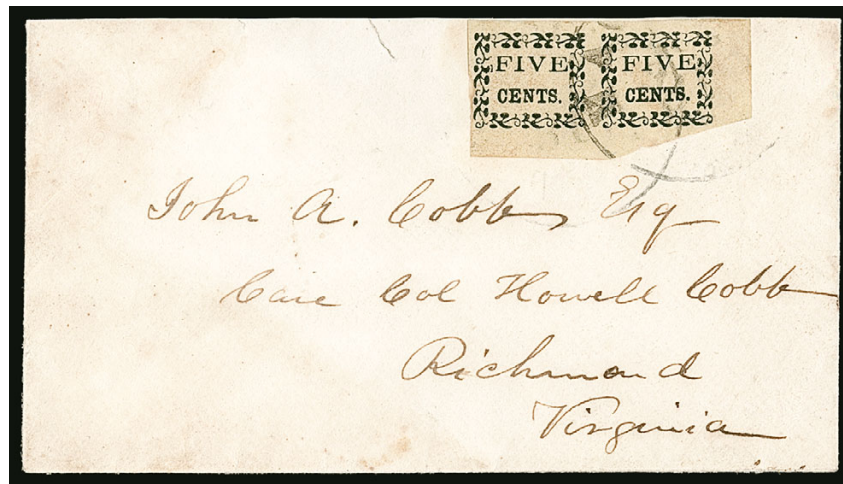 FIVE FIVE
CENTS. CENTS.
John A. Cobb, Esq
Care Col Howell Cobb
Richmond
Virginia